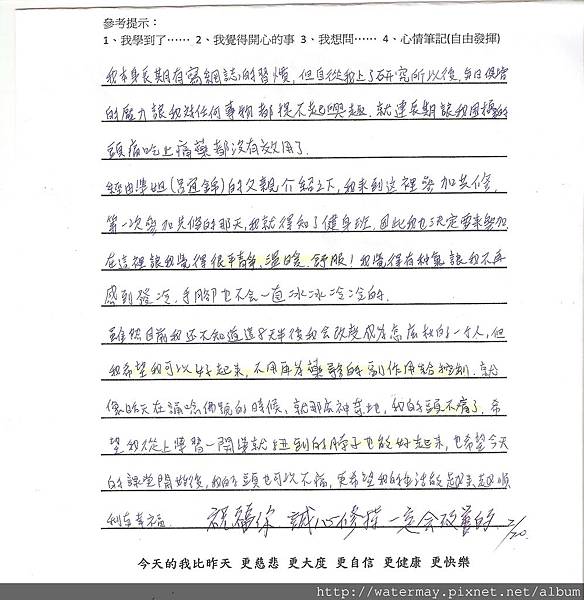 參考提示：
1、我學到了⋯⋯ 2、我覺得開心的事 3、我想問⋯⋯ 4、心情筆記(自由發揮)
我本身長期有寫網誌的習慣，但自從我上了研究所以後，每日
的壓力讓我對任何事物都提不起興趣，就連長期讓我困擾的
頭痛吃止痛藥都沒有效用了。
經由學姐()的父親介紹之下，我來到這裡參加共修，
第一次參加共修的那天，我就得知了健身班，因此我也決定要來參加
在這裡讓我覺得很平靜、溫暖、舒服！我覺得有種氣讓我不再
感到發冷，手腳也不會一直冰冰冷冷的。
雖然目前我還不知道這8天半後我會改變成為怎麼樣的一個人，但
我希望我可以好起來，不用再為藥的副作用給控制。就
像昨天在誦唸佛號的時候，就那麼神奇地，我的頭不痛了。希
望我從上學習一開學就扭到的脖子也能好起來，也希望今天
的課堂開始後，我的頭也可以不痛，更希望我的生活能越來越順
利與幸福。 祝福你 誠心修持 一定會改善的 2/20.
今天的我比昨天 更慈悲 更大度 更自信 更健康 更快樂
http://watermay.pixnet.net/album